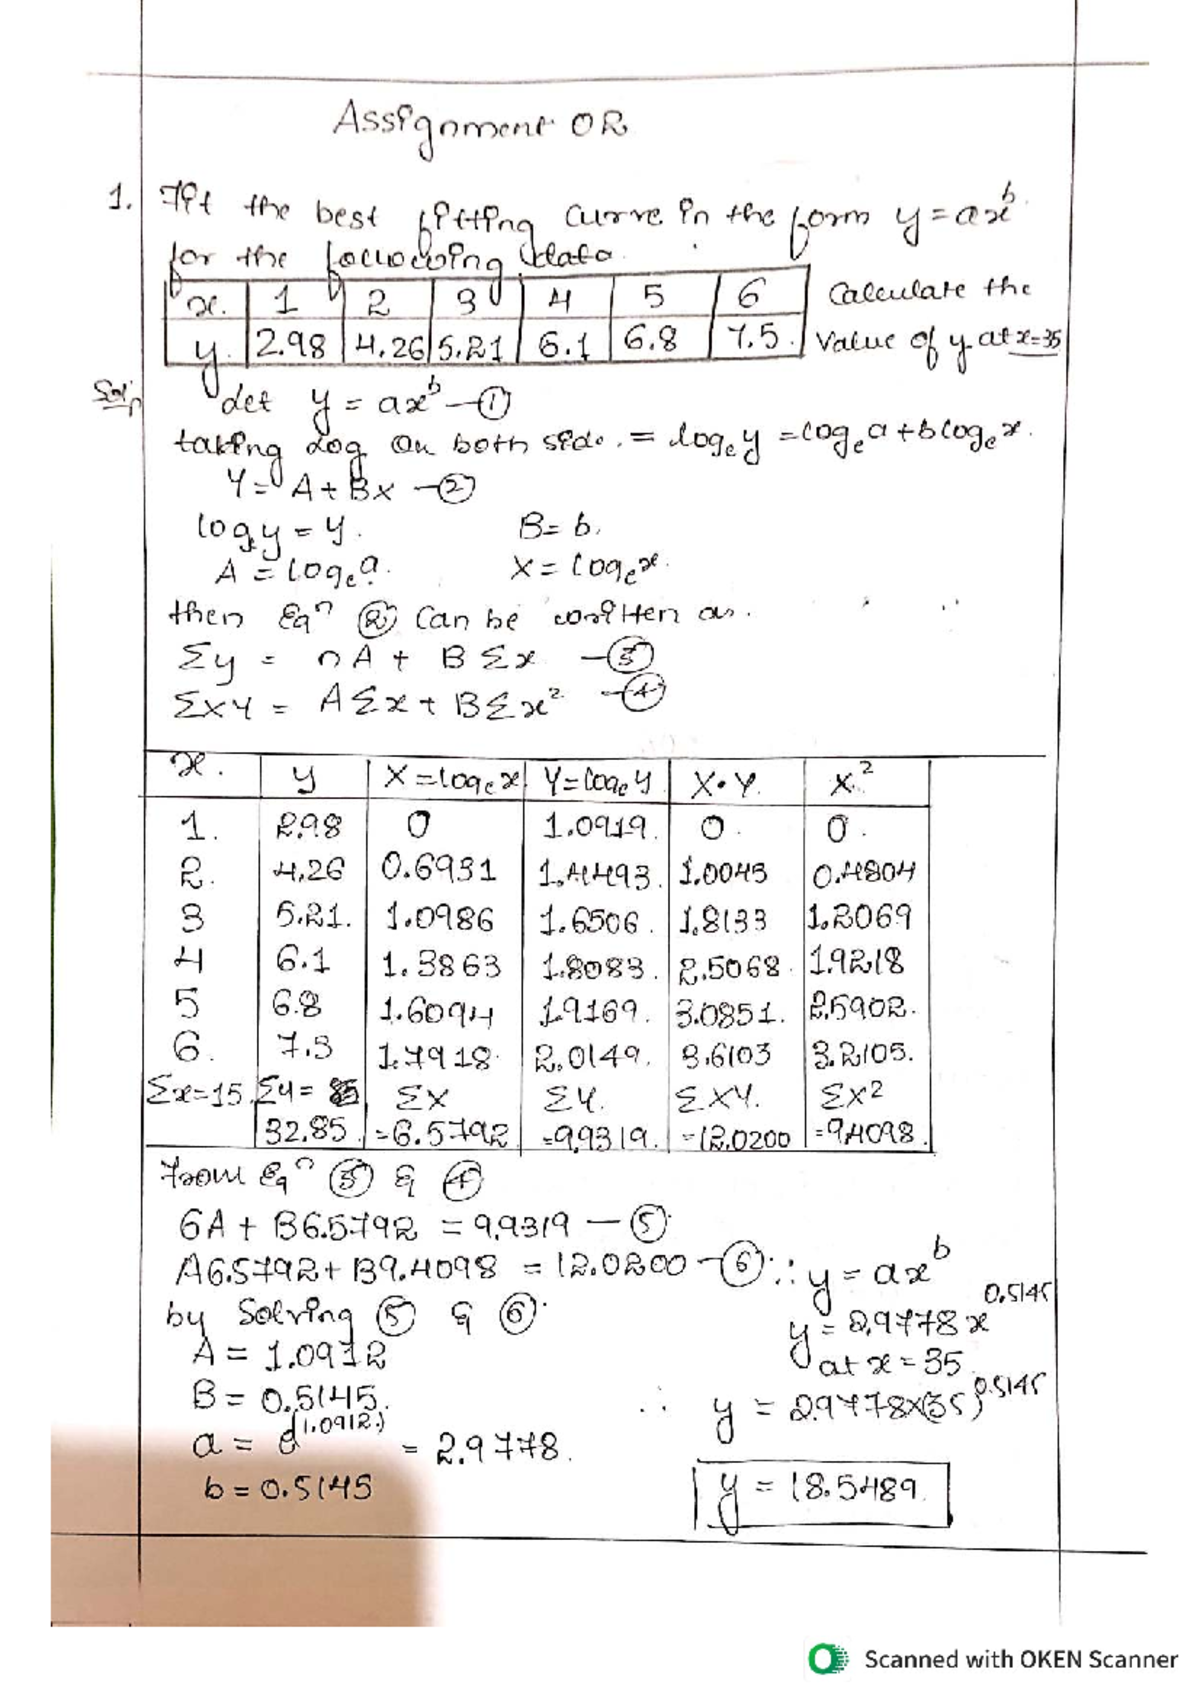 Assignment 02
1. Fit the best fitting curve in the form y = ax^b
for the following data.
x. 1 2 3 4 5 6 Calculate the
y. 2.98 4.26 5.21 6.1 6.8 7.5. value of y at x=35
Solⁿ Let y = ax^b —①
taking Log on both side. = log_e y = log_e a + b log_e x.
Y = A + BX —②
log_e y = Y. B = b.
A = log_e a. X = log_e x.
then Eqⁿ ② can be written as.
Σy = nA + BΣx —③
ΣXY = AΣx + BΣx² —④
x. y X = log_e x Y = log_e y X·Y. X²
1. 2.98 0 1.0919. 0. 0.
2. 4.26 0.6931 1.4493. 1.0045 0.4804
3 5.21. 1.0986 1.6506. 1.8133 1.2069
4 6.1 1.3863 1.8083. 2.5068. 1.9218
5 6.8 1.6094 1.9169. 3.0851. 2.5902.
6. 7.5 1.7918. 2.0149. 3.6103 3.2105.
Σx=15. Σy= ΣX ΣY. ΣXY. ΣX²
32.85. =6.5792 =9.9319. =12.0200 =9.4098.
From Eqⁿ ③ & ④
6A + B6.5792 = 9.9319 —⑤
A6.5792 + B9.4098 = 12.0200 —⑥
by Solving ⑤ & ⑥.
A = 1.0912
B = 0.5145.
a = e^(1.0912) = 2.9778.
b = 0.5145
∵ y = ax^b
y = 2.9778 x^0.5145
at x = 35
∴ y = 2.9778×(35)^0.5145
y = 18.5489.
Scanned with OKEN Scanner